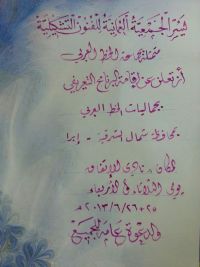 يسر الجمعية العمانية للفنون التشكيلية
ممثلة بجماعة الخط العربي
أن تعلن عن إقامة البرنامج التعريفي
بجماليات الخط العربي
بمحافظة شمال الشرقية - إبرا
المكان: نادي الاتفاق
يومي الثلاثاء والأربعاء
٢٥-٢٦/٦/٢٠١٣م
والدعوة عامة للجميع